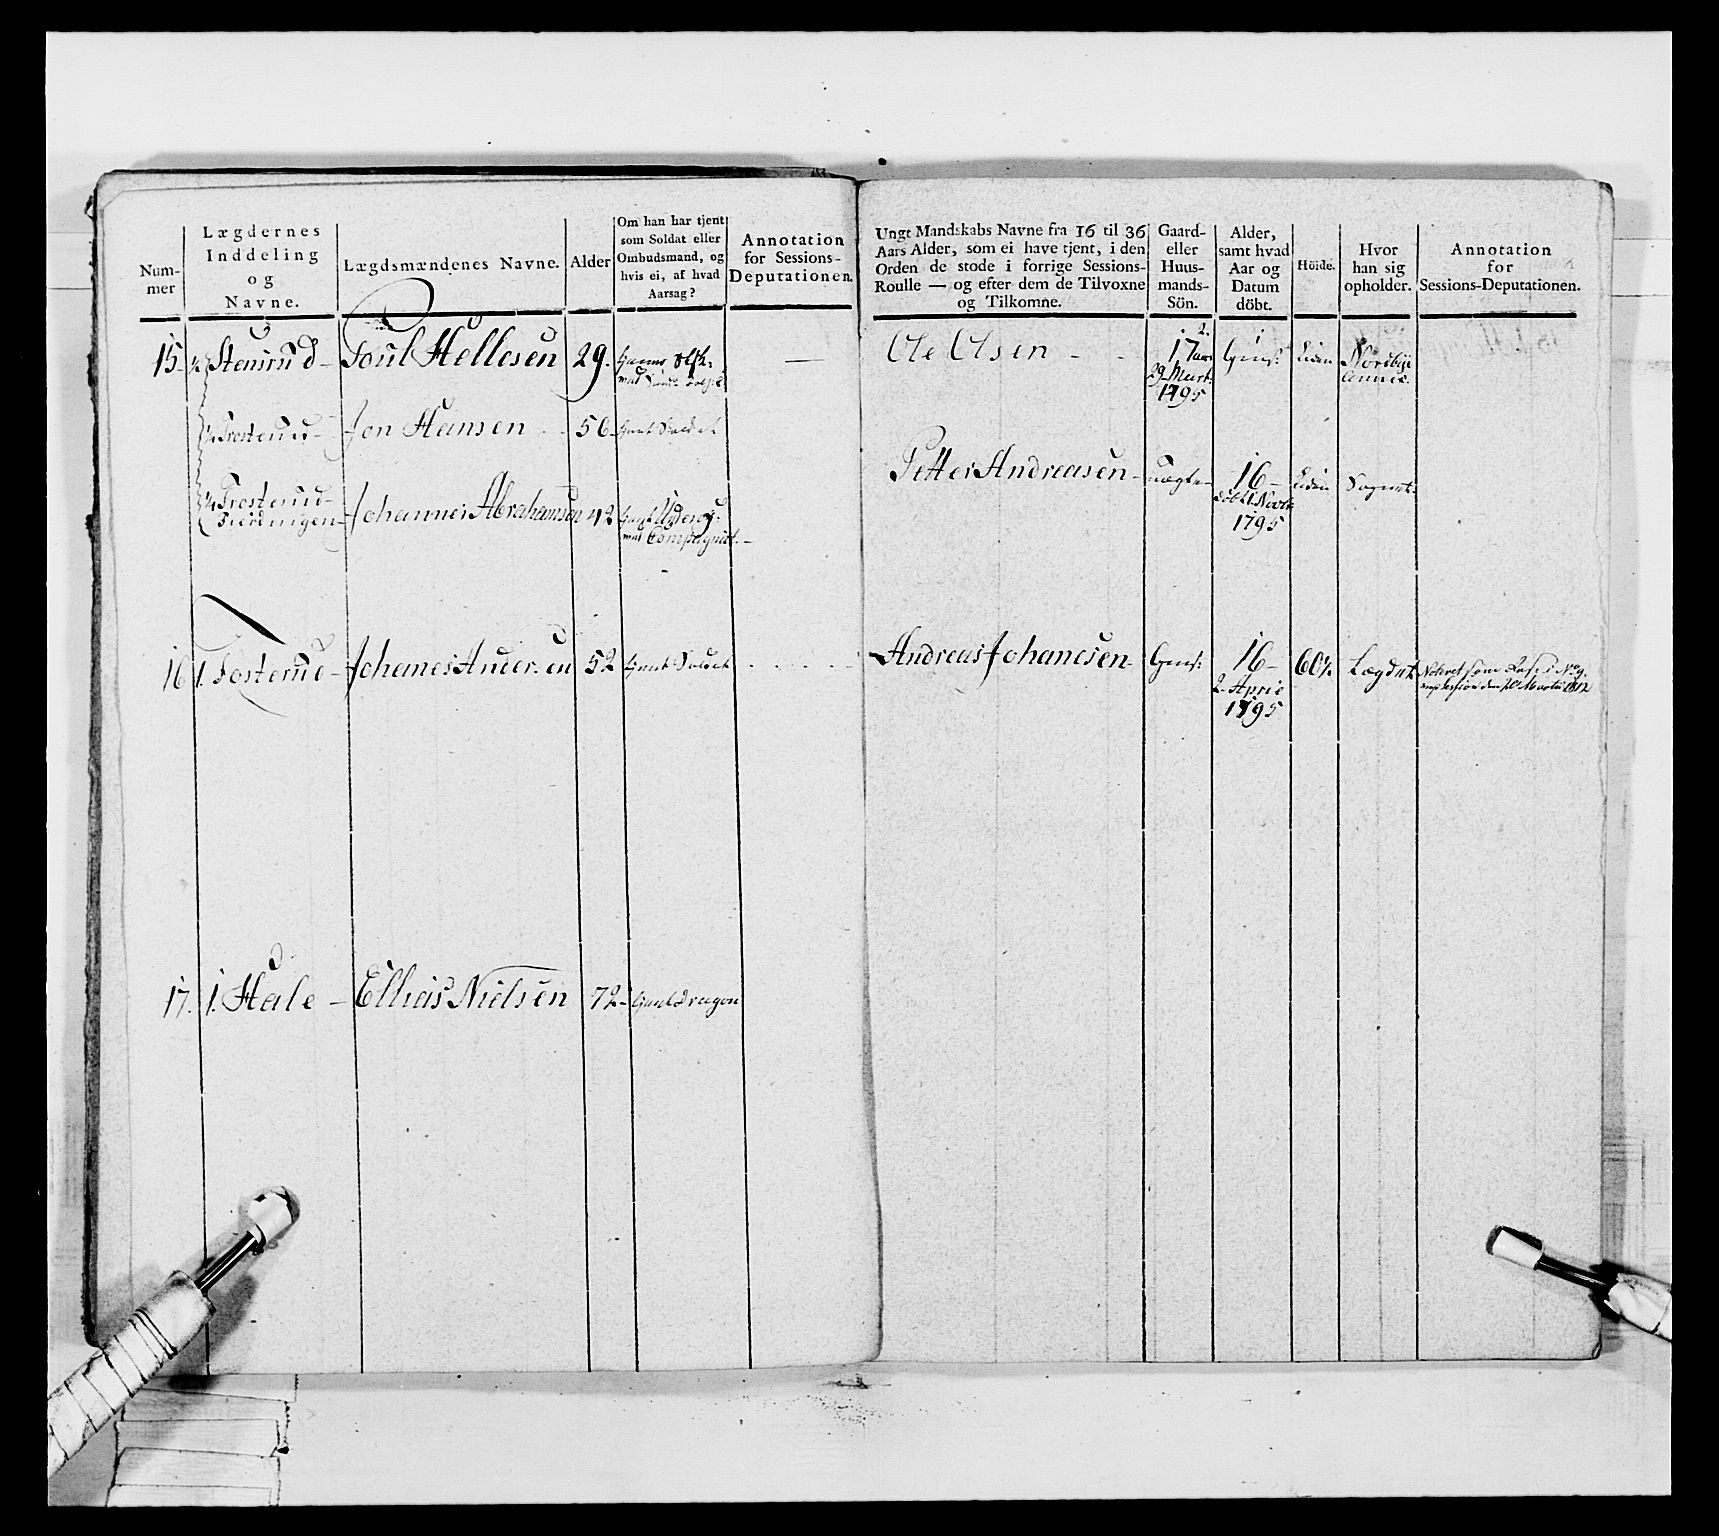 Num-
mer
Lægdernes
Inddeling
og
Navne.
Lægdsmændenes Navne.
Alder
Om han har tjent
som Soldat eller
Ombudsmand, og
hvis ei, af hvad
Aarsag?
Annotation
for Sessions-
Deputationen.
15. ½ Stensrud - Poul Hellesen 29.
¼ Trosterud - Jon Hansen 56 - Gaml Soldat
¼ Trosterud -
Fierdingen - Johannes Abrahamsen 42
Compagniet. -
16 1. Tosterud - Johanes Andersen 52 Gaml Soldat
17. 1. Hale - Ellias Nielsen 72 - Gaml Dragon
Ungt Mandskabs Navne fra 16 til 36
Aars Alder, som ei have tjent, i den
Orden de stode i forrige Sessions-
Roulle — og efter dem de Tilvoxne
og Tilkomne.
Gaard-
eller
Huus-
mands-
Sön.
Alder,
samt hvad
Aar og
Datum
döbt.
Höide.
Hvor
han sig
opholder.
Annotation
for
Sessions-Deputationen.
Ole Olsen - - 17 Liden Nordbye
29 Marts
1795
Petter Andreasen - uægte - 16 - Liden Sognet.
1795
Andreas Johanesen - 16 - 60¼ Lægdet
2. April
1795